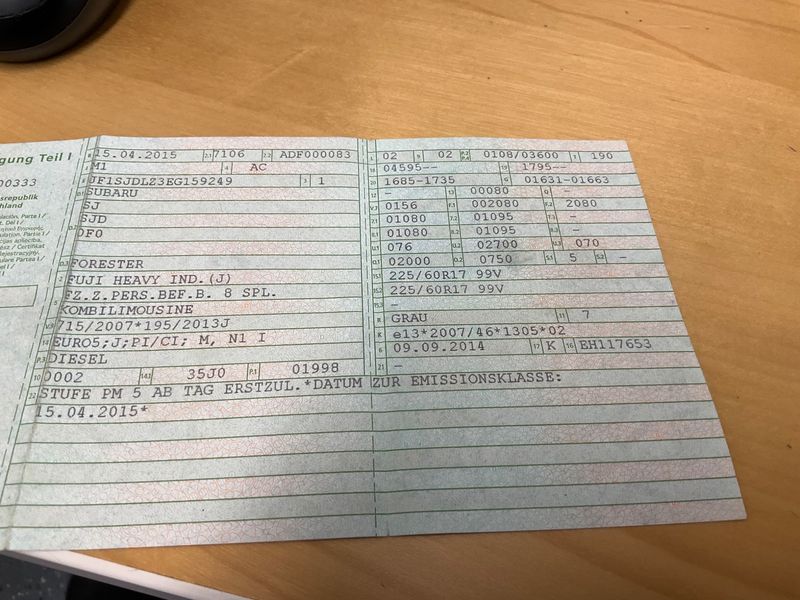 gung Teil I
00333
15.04.2015 7106 ADF000083
M1 AC
JF1SJDLZ3EG159249 1
SUBARU
SJ
SJD
DF0
FORESTER
FUJI HEAVY IND.(J)
FZ.Z.PERS.BEF.B. 8 SPL.
KOMBILIMOUSINE
715/2007*195/2013J
EURO5;J;PI/CI; M, N1 I
DIESEL
0002 35J0 01998
STUFE PM 5 AB TAG ERSTZUL.*DATUM ZUR EMISSIONSKLASSE:
15.04.2015*
02 02 0108/03600 190
04595-- 1795--
1685-1735 01631-01663
- 00080 -
0156 002080 2080
01080 01095 -
01080 01095 -
076 02700 070
02000 0750 5 -
225/60R17 99V
225/60R17 99V
-
GRAU 7
e13*2007/46*1305*02
09.09.2014 K EH117653
-